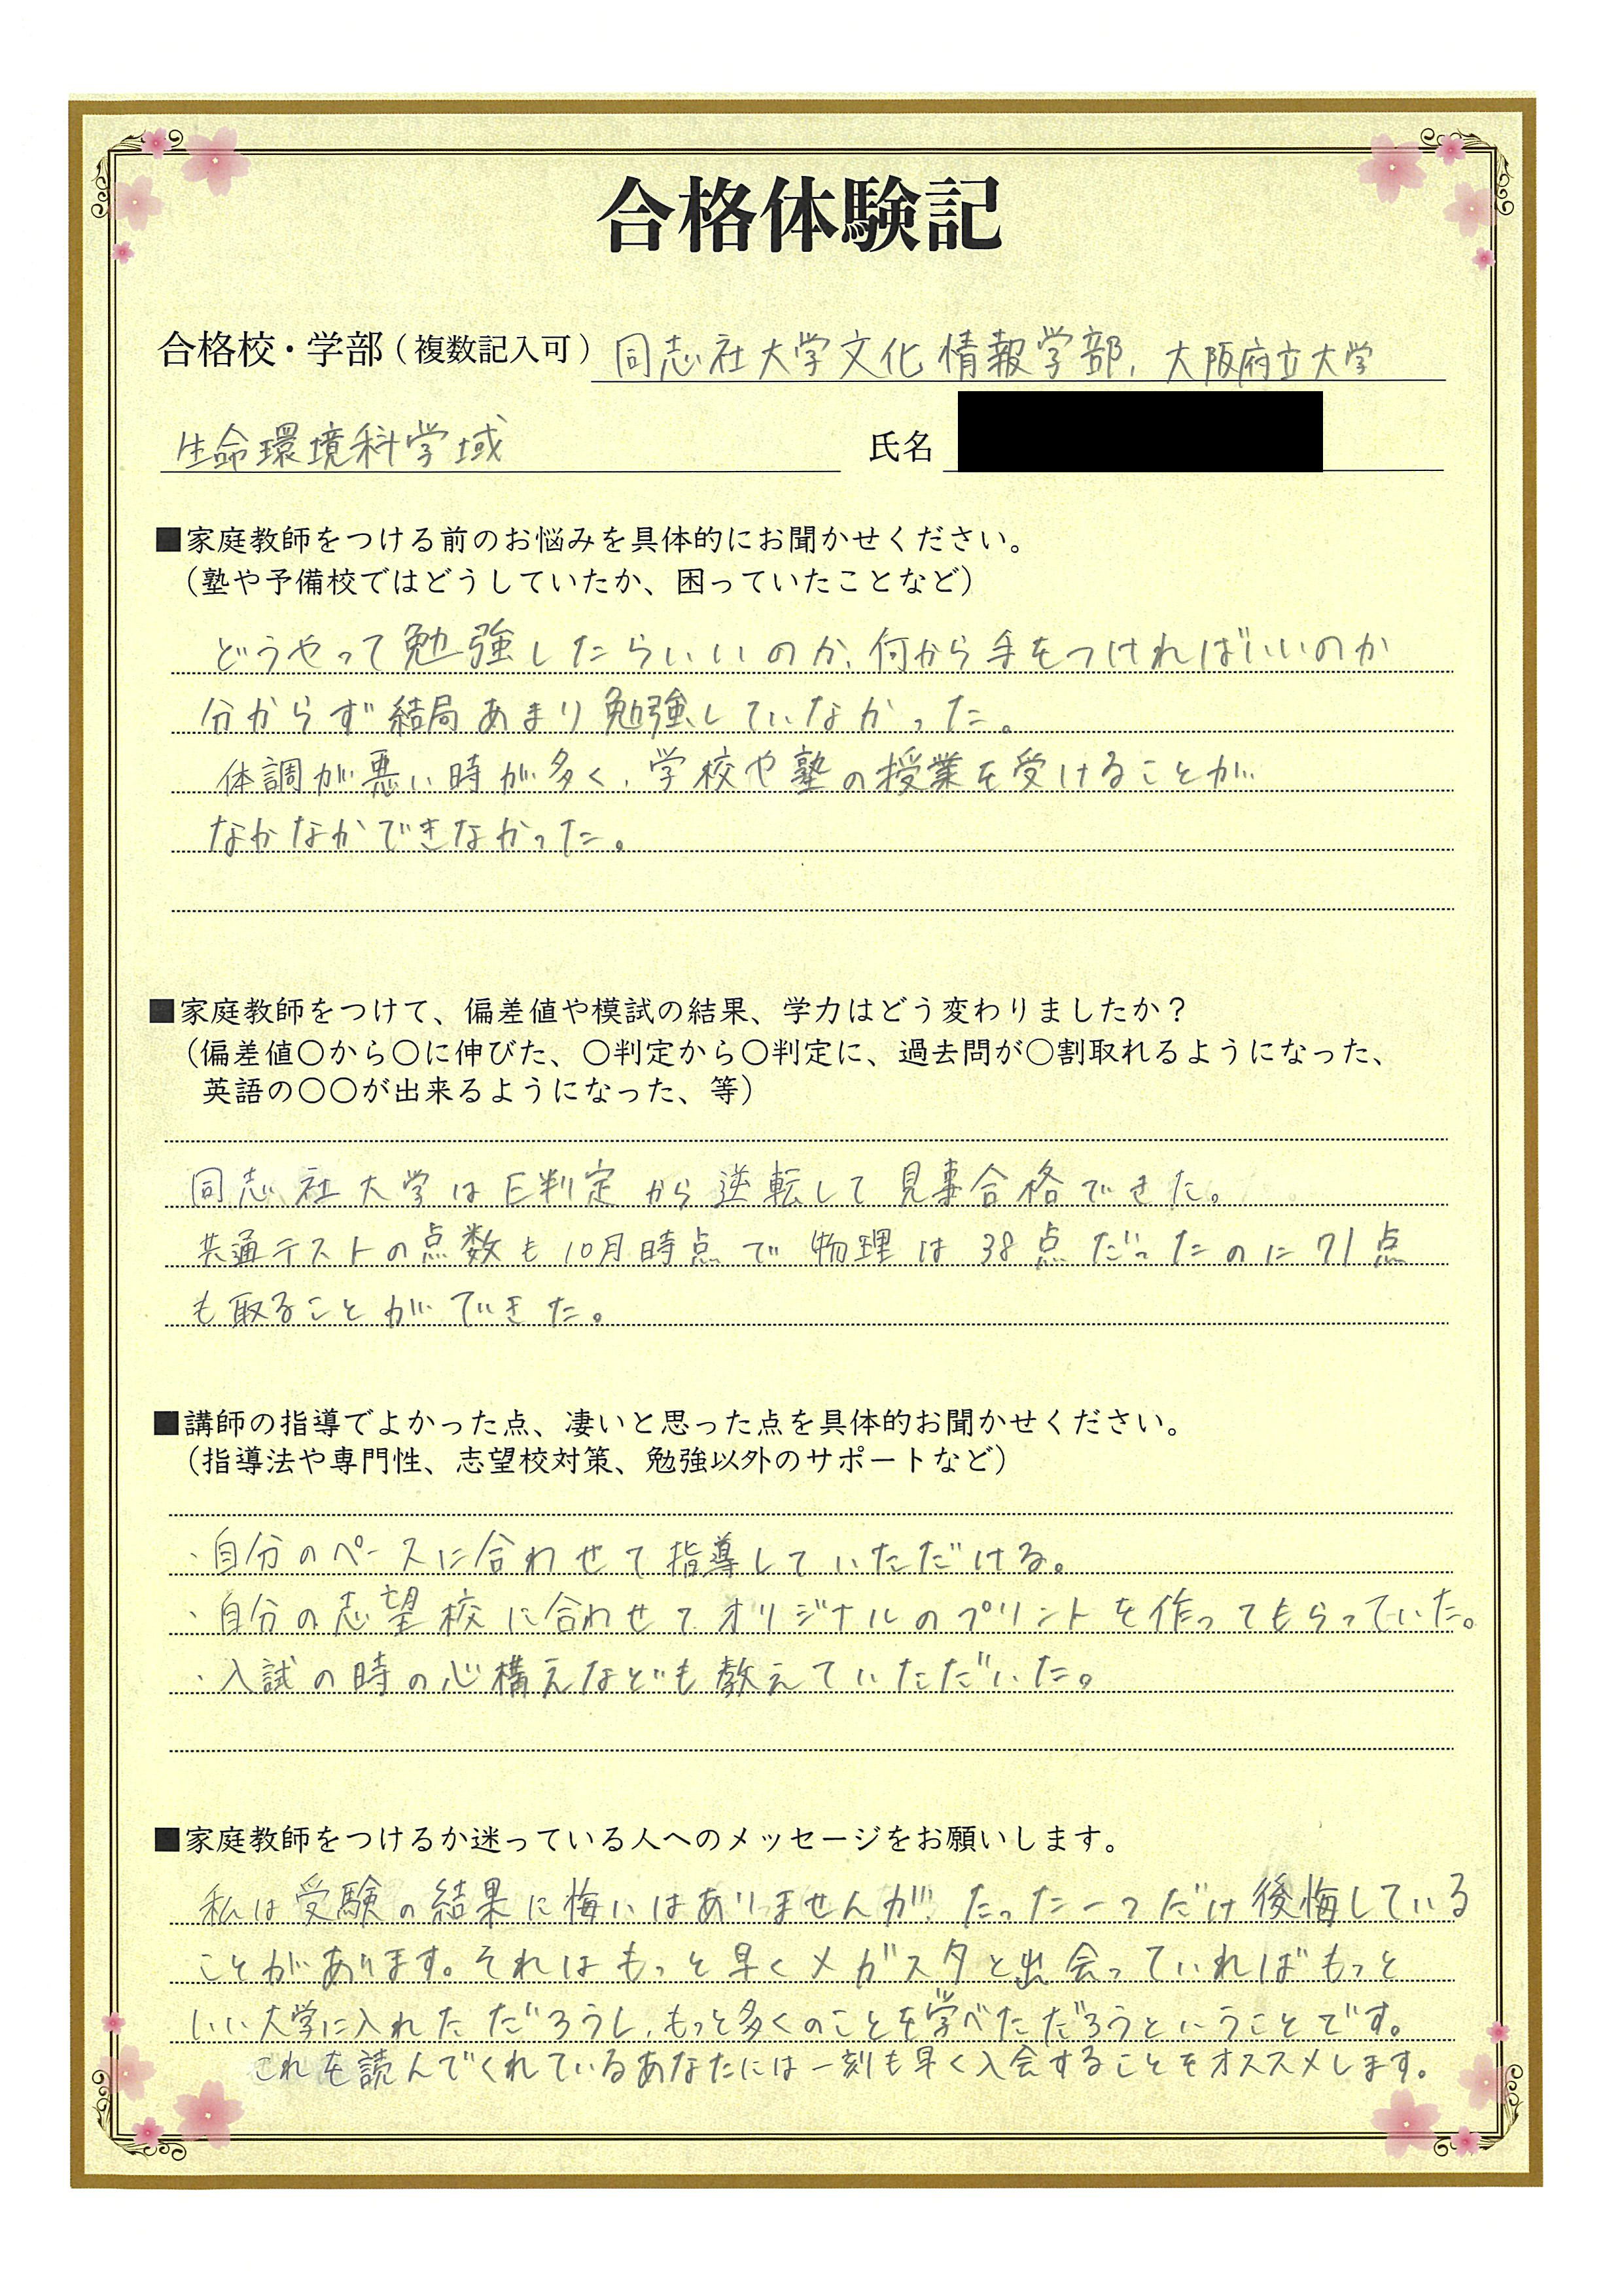 合格体験記
合格校・学部（複数記入可） 同志社大学文化情報学部、大阪府立大学
生命環境科学域 氏名
■家庭教師をつける前のお悩みを具体的にお聞かせください。
（塾や予備校ではどうしていたか、困っていたことなど）
どうやって勉強したらいいのか、何から手をつければいいのか
分からず結局あまり勉強していなかった。
体調が悪い時が多く、学校や塾の授業を受けることが
なかなかできなかった。
■家庭教師をつけて、偏差値や模試の結果、学力はどう変わりましたか？
（偏差値〇から〇に伸びた、〇判定から〇判定に、過去問が〇割取れるようになった、
英語の〇〇が出来るようになった、等）
同志社大学はE判定から逆転して見事合格できた。
共通テストの点数も10月時点で物理は38点だったのに71点
も取ることができた。
■講師の指導でよかった点、凄いと思った点を具体的お聞かせください。
（指導法や専門性、志望校対策、勉強以外のサポートなど）
・自分のペースに合わせて指導していただける。
・自分の志望校に合わせてオリジナルのプリントを作ってもらっていた。
・入試の時の心構えなども教えていただいた。
■家庭教師をつけるか迷っている人へのメッセージをお願いします。
私は受験の結果に悔いはありませんが、たった一つだけ後悔している
ことがあります。それはもっと早くメガスタと出会っていればもっと
いい大学に入れたただろうし、もっと多くのことを学べただろうということです。
これを読んでくれているあなたには一刻も早く入会することをオススメします。